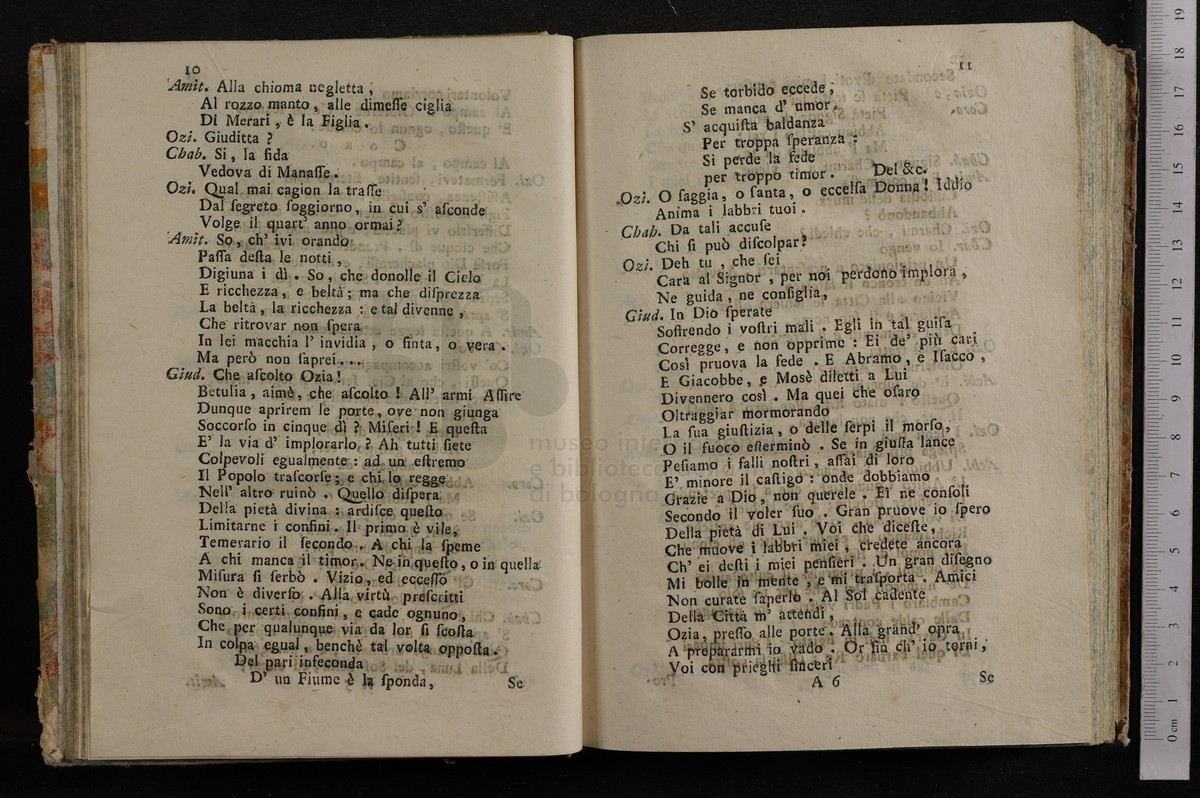 10
Amit. Alla chioma negletta ;
Al rozzo manto, alle dimeſſe ciglia
Di Merari, è la Figlia.
Ozi. Giuditta ?
Chab. Si, la fida
Vedova di Manaſſe.
Ozi. Qual mai cagion la traſſe
Dal ſegreto ſoggiorno, in cui s' aſconde
Volge il quart' anno ormai?
Amit. So, ch' ivi orando
Paſſa deſta le notti,
Digiuna i dì. So, che donolle il Cielo
E ricchezza, e beltà; ma che diſprezza
La beltà, la ricchezza : e tal divenne,
Che ritrovar non ſpera
In lei macchia l' invidia, o finta, o vera.
Ma però non ſaprei....
Giud. Che aſcolto Ozia!
Betulia, aimè, che aſcolto ! All' armi Aſſire
Dunque aprirem le porte, ove non giunga
Soccorſo in cinque dì ? Miſeri ! E queſta
E' la via d' implorarlo ? Ah tutti ſiete
Colpevoli egualmente : ad un eſtremo
Il Popolo traſcorſe; e chi lo regge
Nell' altro ruinò. Quello diſpera
Della pietà divina : ardiſce queſto
Limitarne i confini. Il primo è vile,
Temerario il ſecondo. A chi la ſpeme
A chi manca il timor. Ne in queſto, o in quella
Miſura ſi ſerbò. Vizio, ed ecceſſo
Non è diverſo. Alla virtù preſcritti
Sono i certi confini, e cade ognuno,
Che per qualunque via da lor ſi ſcoſta
In colpa egual, benchè tal volta oppoſta.
Del pari infeconda
D' un Fiume è la ſponda,
Se
11
Se torbido eccede;
Se manca d' umor.
S' acquiſta baldanza
Per troppa ſperanza :
Si perde la fede
per troppo timor. Del &c.
Ozi. O ſaggia, o ſanta, o eccelſa Donna! Iddio
Anima i labbri tuoi.
Chab. Da tali accuſe
Chi ſi può diſcolpar?
Ozi. Deh tu, che ſei
Cara al Signor, per noi perdono implora,
Ne guida, ne conſiglia,
Giud. In Dio ſperate
Soffrendo i voſtri mali. Egli in tal guiſa
Corregge, e non opprime : Ei de' più cari
Così pruova la fede. E Abramo, e Iſacco,
E Giacobbe, e Mosè diletti a Lui
Divennero così. Ma quei che oſaro
Oltraggiar mormorando
La ſua giuſtizia, o delle ſerpi il morſo,
O il fuoco eſterminò. Se in giuſta lance
Peſiamo i falli noſtri, aſſai di loro
E' minore il caſtigo : onde dobbiamo
Grazie a Dio, non querele. Ei ne conſoli
Secondo il voler ſuo. Gran pruove io ſpero
Della pietà di Lui. Voi che diceſte,
Che muove i labbri miei, credete ancora
Ch' ei deſti i miei penſieri. Un gran diſegno
Mi bolle in mente, e mi traſporta. Amici
Non curate ſaperlo. Al Sol cadente
Della Città m' attendi,
Ozia, preſſo alle porte. Alla grand' opra
A prepararmi io vado. Or fin ch' io torni,
Voi con prieghi ſinceri
A 6
Se